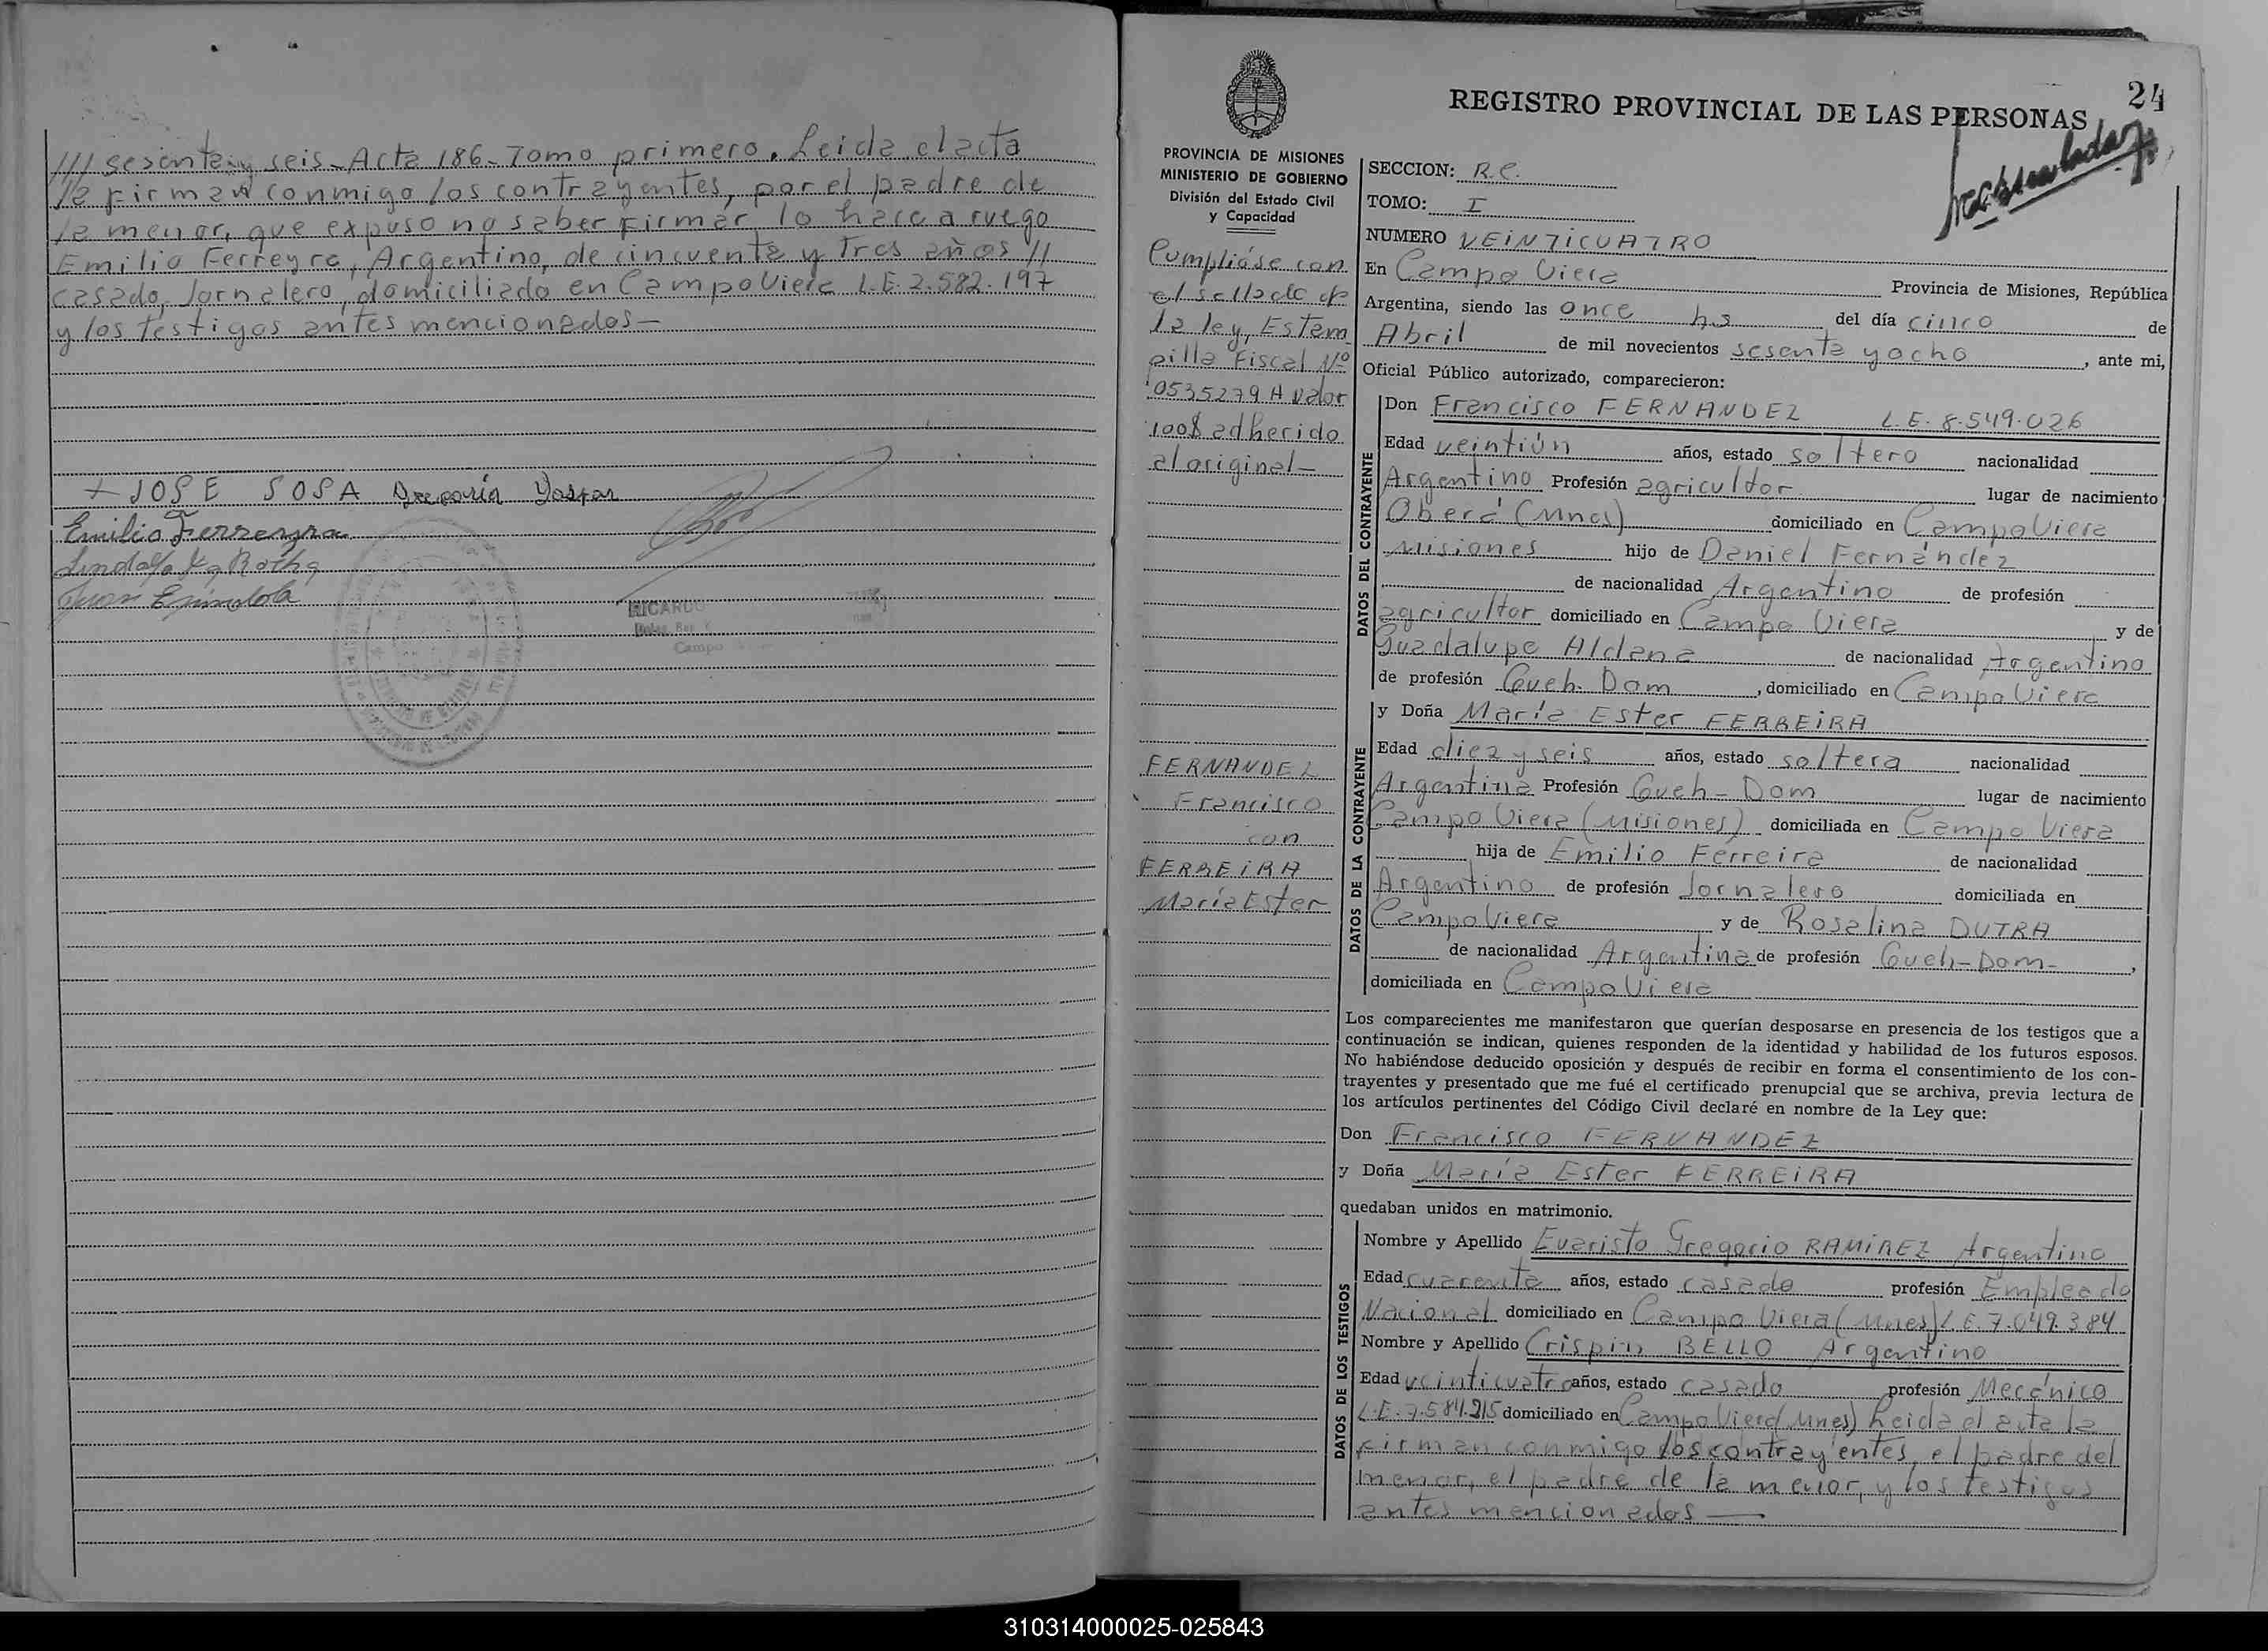 /// sesenta y seis - Acta 186 - Tomo primero. Leida el acta
la firman conmigo los contrayentes, por el padre de
la menor, que expuso no saber firmar lo hace a ruego
Emilio Ferreyra, Argentino, de cincuenta y tres años //
casado, Jornalero, domiciliado en Campo Viera L.E. 2.582.197
y los testigos antes mencionados —
+ JOSE SOSA
Emilio Ferreyra
Juan Espindola
RICARDO
Campo
24
REGISTRO PROVINCIAL DE LAS PERSONAS
PROVINCIA DE MISIONES
MINISTERIO DE GOBIERNO
División del Estado Civil
y Capacidad
Cumplióse con
el sellado de
la ley, Estam
pilla Fiscal Nº
0535279 A valor
100$ adherido
al original —
FERNANDEZ
Francisco
con
FERREIRA
María Ester
SECCION: R.C.
TOMO: I
NUMERO VEINTICUATRO
En Campo Viera Provincia de Misiones, República
Argentina, siendo las once hs del día cinco de
Abril de mil novecientos sesenta y ocho, ante mi,
Oficial Público autorizado, comparecieron:
DATOS DEL CONTRAYENTE
Don Francisco FERNANDEZ L.E. 8.549.026
Edad veintiún años, estado soltero nacionalidad
Argentino Profesión agricultor lugar de nacimiento
Oberá (Mnes) domiciliado en Campo Viera
Misiones hijo de Daniel Fernández
de nacionalidad Argentino de profesión
agricultor domiciliado en Campo Viera y de
Guadalupe Aldana de nacionalidad Argentina
de profesión Queh. Dom, domiciliado en Campo Viera
DATOS DE LA CONTRAYENTE
y Doña María Ester FERREIRA
Edad diez y seis años, estado soltera nacionalidad
Argentina Profesión Queh - Dom lugar de nacimiento
Campo Viera (Misiones) domiciliada en Campo Viera
hija de Emilio Ferreira de nacionalidad
Argentino de profesión Jornalero domiciliada en
Campo Viera y de Rosalina DUTRA
de nacionalidad Argentina de profesión Queh - Dom -,
domiciliada en Campo Viera
Los comparecientes me manifestaron que querían desposarse en presencia de los testigos que a
continuación se indican, quienes responden de la identidad y habilidad de los futuros esposos.
No habiéndose deducido oposición y después de recibir en forma el consentimiento de los con-
trayentes y presentado que me fué el certificado prenupcial que se archiva, previa lectura de
los artículos pertinentes del Código Civil declaré en nombre de la Ley que:
Don Francisco FERNANDEZ
y Doña María Ester FERREIRA
quedaban unidos en matrimonio.
DATOS DE LOS TESTIGOS
Nombre y Apellido Evaristo Gregorio RAMIREZ Argentino
Edad cuarenta años, estado casado profesión Empleado
Nacional domiciliado en Campo Viera (Mnes) L.E. 7.049.384
Nombre y Apellido Crispin BELLO Argentino
Edad veinticuatro años, estado casado profesión Mecánico
L.E. 7.584.215 domiciliado en Campo Viera (Mnes) Leida el acta la
firman conmigo los contrayentes, el padre del
menor, el padre de la menor, y los testigos
antes mencionados —
310314000025-025843